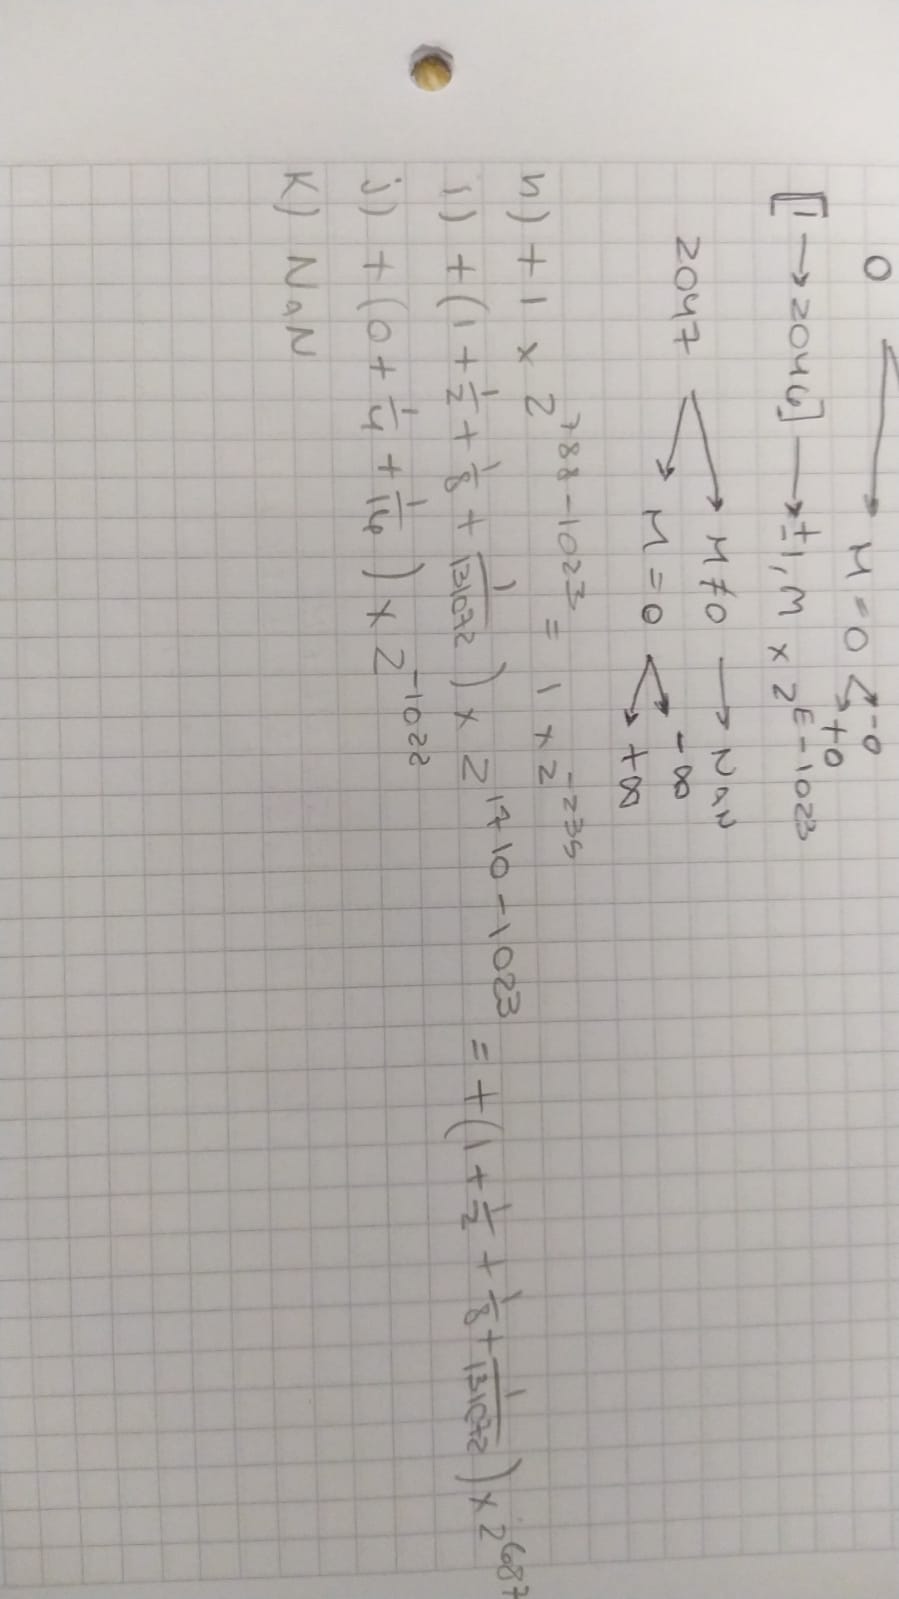 0 → M = 0 < -0
+0
[1 → 2046] → ±1,M × 2^E-1023
2047 → M ≠ 0 → NaN
→ M = 0 < -∞
+∞
h) + 1 × 2^788-1023 = 1 × 2^-235
i) + (1 + 1/2 + 1/8 + 1/131072) × 2^1710-1023 = + (1 + 1/2 + 1/8 + 1/131072) × 2^687
j) + (0 + 1/4 + 1/16) × 2^-1022
K) NaN